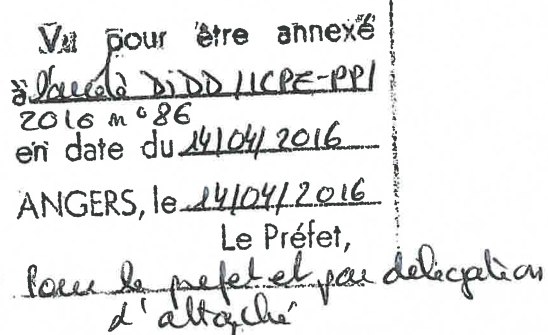 Vu pour être annexé
à l'arrêté DIDD/ICPE-PPI
2016 n° 86
en date du 14/04/2016
ANGERS, le 14/04/2016
Le Préfet,
Pour le préfet et par délégation
d'attaché